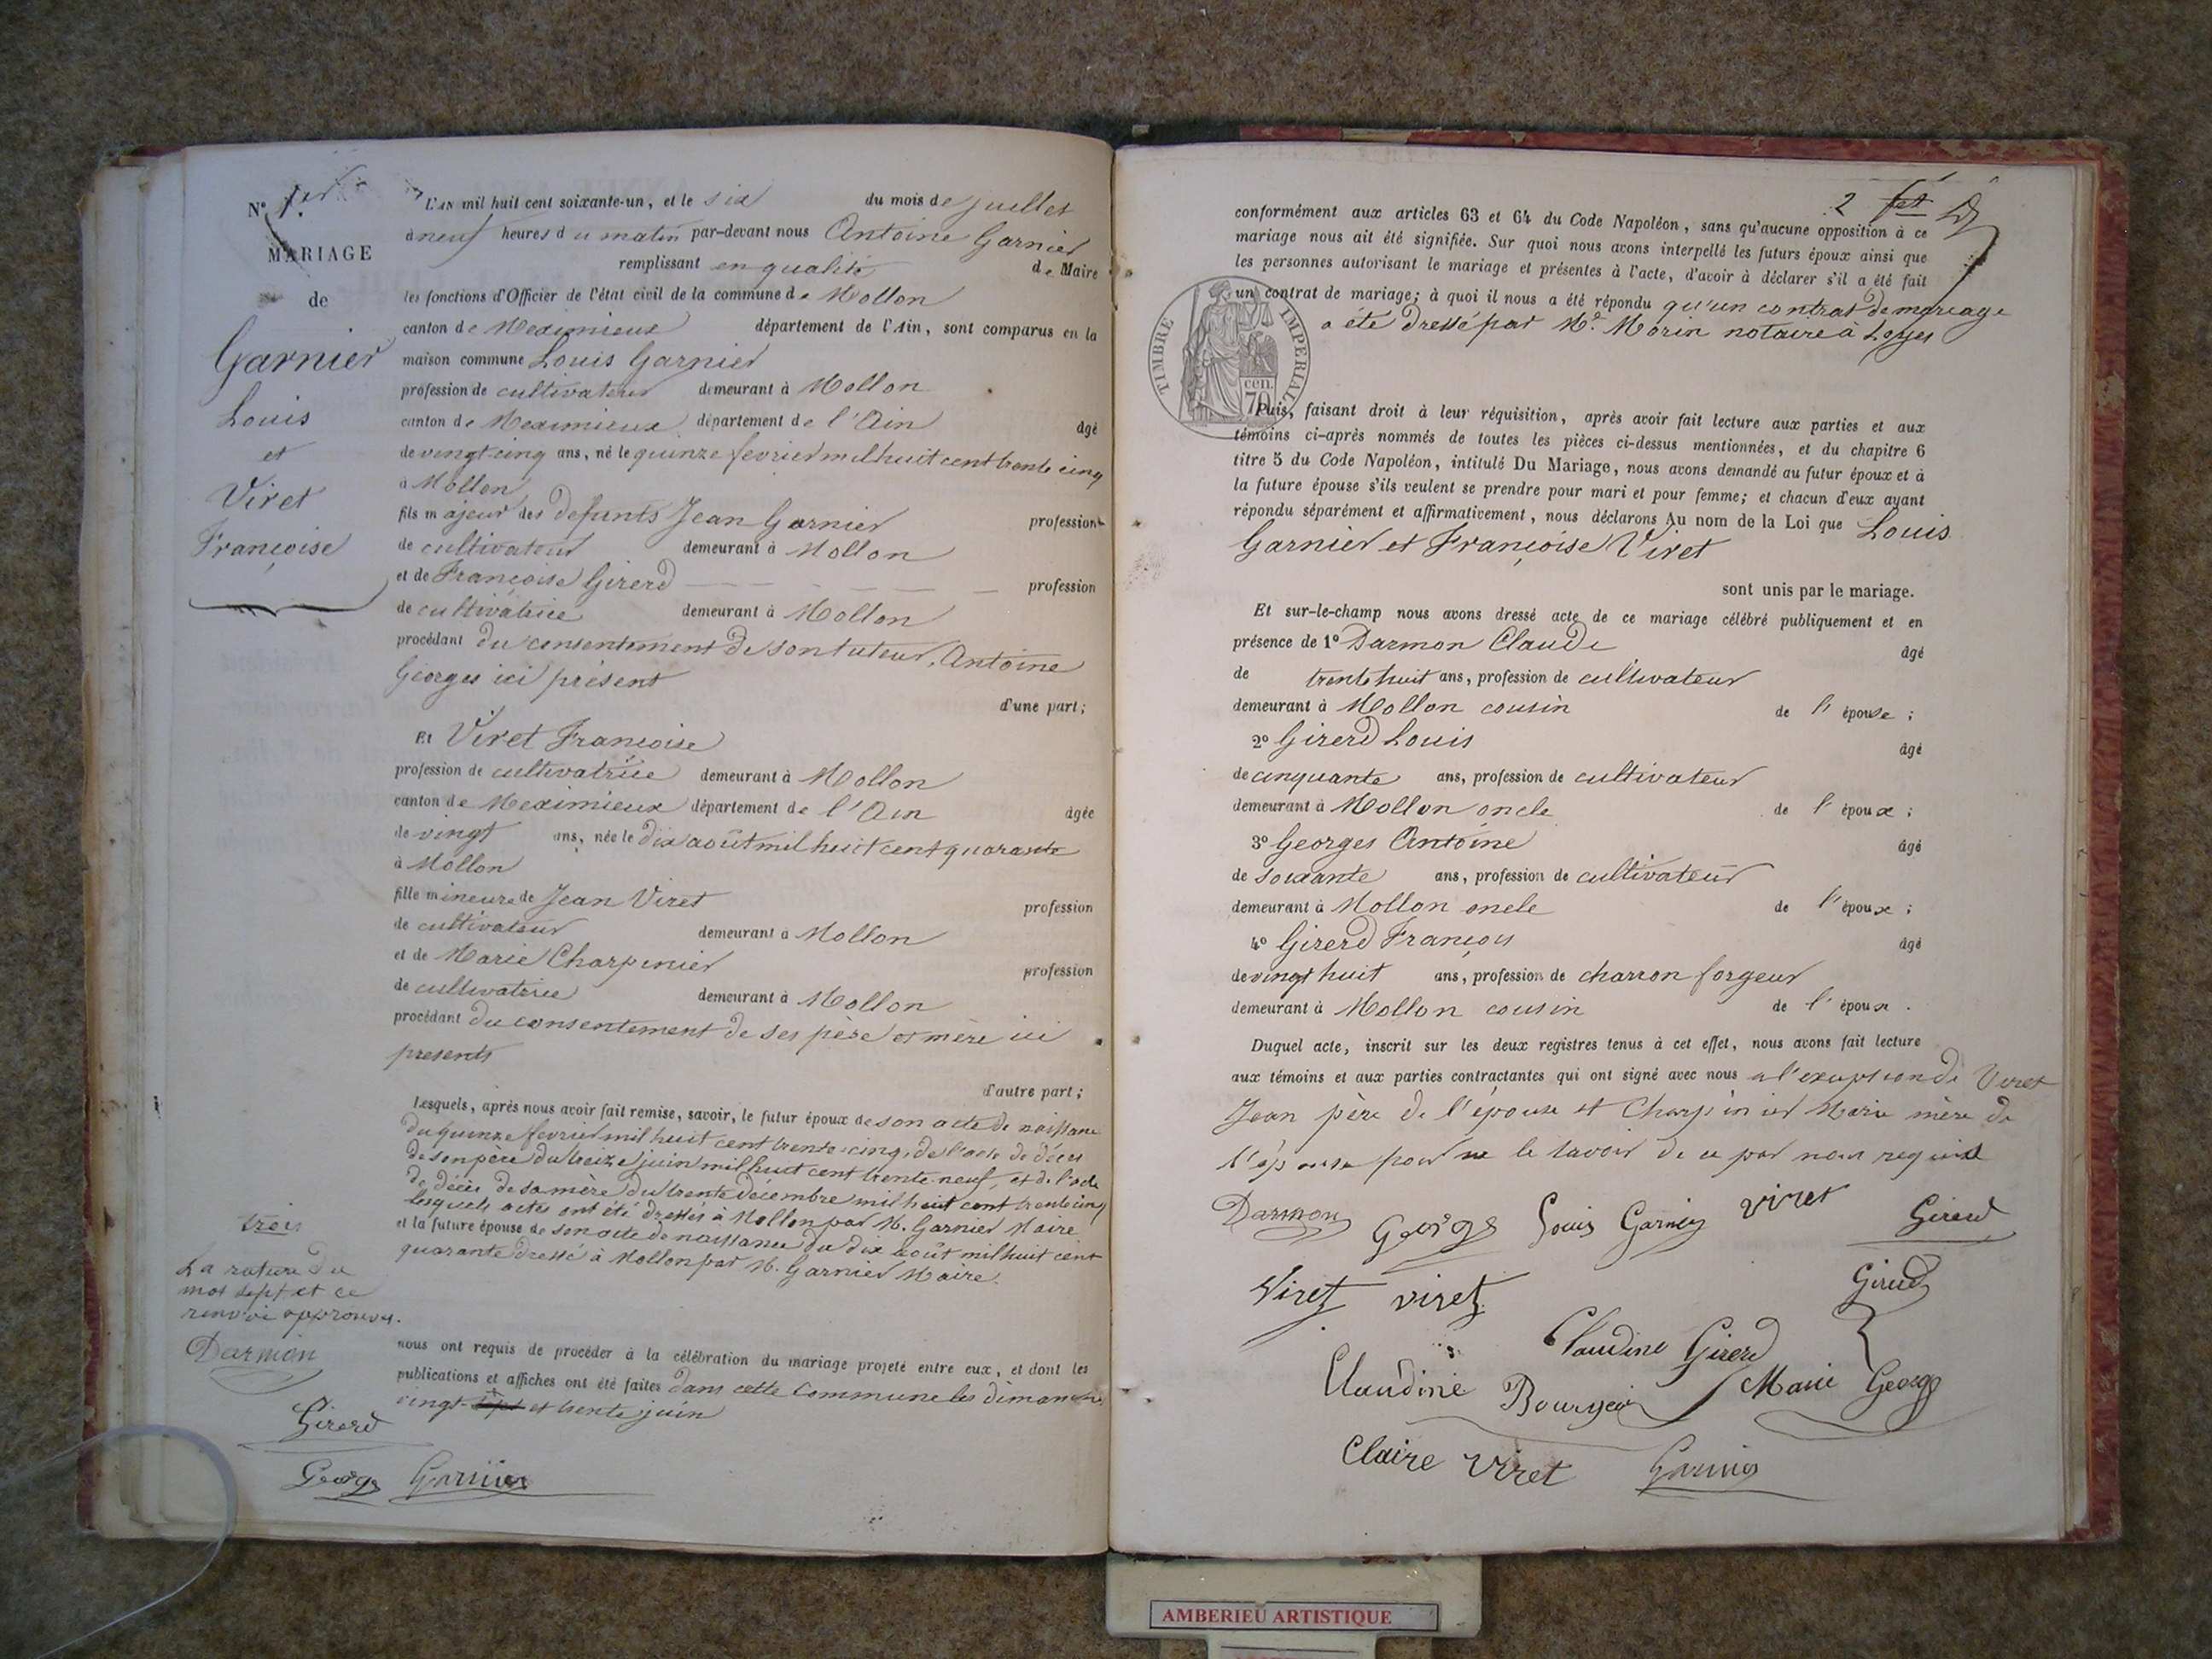 N° 1er
MARIAGE
de
Garnier
Louis
et
Viret
Françoise
L'AN mil huit cent soixante-un, et le six du mois de juillet
à neuf heures du matin par-devant nous Antoine Garnier
remplissant en qualité de Maire
les fonctions d'Officier de l'état civil de la commune de Mollon
canton de Meximieux département de l'Ain, sont comparus en la
maison commune Louis Garnier
profession de cultivateur demeurant à Mollon
canton de Meximieux département de l'Ain âgé
de vingt cinq ans, né le quinze fevrier mil huit cent trente cinq
à Mollon
fils majeur des defunts Jean Garnier profession
de cultivateur demeurant à Mollon
et de Françoise Girerd profession
de cultivatrice demeurant à Mollon
procédant du consentement de son tuteur, Antoine
Georges ici présent
d'une part;
Et Viret Françoise
profession de cultivatrice demeurant à Mollon
canton de Meximieux département de l'Ain âgée
de vingt ans, née le dix août mil huit cent quarante
à Mollon
fille mineure de Jean Viret profession
de cultivateur demeurant à Mollon
et de Marie Charpinier profession
de cultivatrice demeurant à Mollon
procédant du consentement de ses père et mère ici
presents
d'autre part;
Lesquels, après nous avoir fait remise, savoir, le futur époux de son acte de naissance
du quinze fevrier mil huit cent trente-cinq, de l'acte de décès
de son père du treize juin mil huit cent trente-neuf, et de l'acte
de décès de sa mère du trente décembre mil huit cent trente cinq
lesquels actes ont été dressés à Mollon par M. Garnier Maire
et la future épouse de son acte de naissance du dix août mil huit cent
quarante dressé à Mollon par M. Garnier Maire.
trois
La rature du
mot sept et ce
renvoi approuvés.
Darmon
Girerd
George Garnier
nous ont requis de procéder à la célébration du mariage projeté entre eux, et dont les
publications et affiches ont été faites dans cette commune les dimanches
vingt-sept et trente juin
2
conformément aux articles 63 et 64 du Code Napoléon, sans qu'aucune opposition à ce
mariage nous ait été signifiée. Sur quoi nous avons interpellé les futurs époux ainsi que
les personnes autorisant le mariage et présentes à l'acte, d'avoir à déclarer s'il a été fait
un contrat de mariage; à quoi il nous a été répondu qu'un contrat de mariage
a été dressé par Me. Morin notaire à Loyes
TIMBRE IMPERIAL
70 cen.
Puis, faisant droit à leur réquisition, après avoir fait lecture aux parties et aux
témoins ci-après nommés de toutes les pièces ci-dessus mentionnées, et du chapitre 6
titre 5 du Code Napoléon, intitulé Du Mariage, nous avons demandé au futur époux et à
la future épouse s'ils veulent se prendre pour mari et pour femme; et chacun d'eux ayant
répondu séparément et affirmativement, nous déclarons Au nom de la Loi que Louis
Garnier et Françoise Viret
sont unis par le mariage.
Et sur-le-champ nous avons dressé acte de ce mariage célébré publiquement et en
présence de 1° Darmon Claude âgé
de trente huit ans, profession de cultivateur
demeurant à Mollon cousin de l'épouse;
2° Girerd Louis âgé
de cinquante ans, profession de cultivateur
demeurant à Mollon oncle de l'époux;
3° Georges Antoine âgé
de soixante ans, profession de cultivateur
demeurant à Mollon oncle de l'époux;
4° Girerd François âgé
de vingt huit ans, profession de charron forgeur
demeurant à Mollon cousin de l'époux.
Duquel acte, inscrit sur les deux registres tenus à cet effet, nous avons fait lecture
aux témoins et aux parties contractantes qui ont signé avec nous a l'exception de Viret
Jean père de l'épouse et Charpinier Marie mère de
l'épouse pour ne le savoir de ce par nous requis
Darmon George Louis Garnier viret Girerd
Viret viret Girerd
Claudine Girerd
Claudine Bourgeois Marie George
Claire Viret Garnier
AMBERIEU ARTISTIQUE